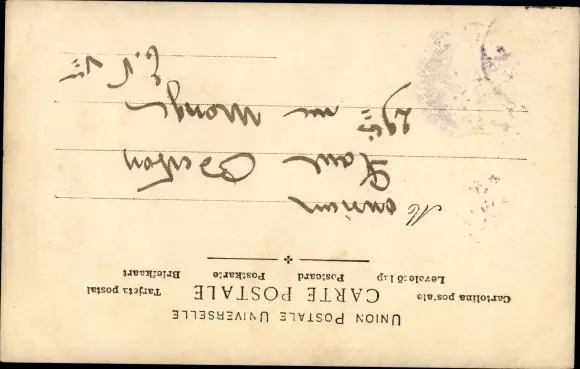 UNION POSTALE UNIVERSELLE
Cartolina postale CARTE POSTALE Tarjeta postal
Levelező Lap Postcard Postkarte Briefkaart
Monsieur
Paul
rue Monge